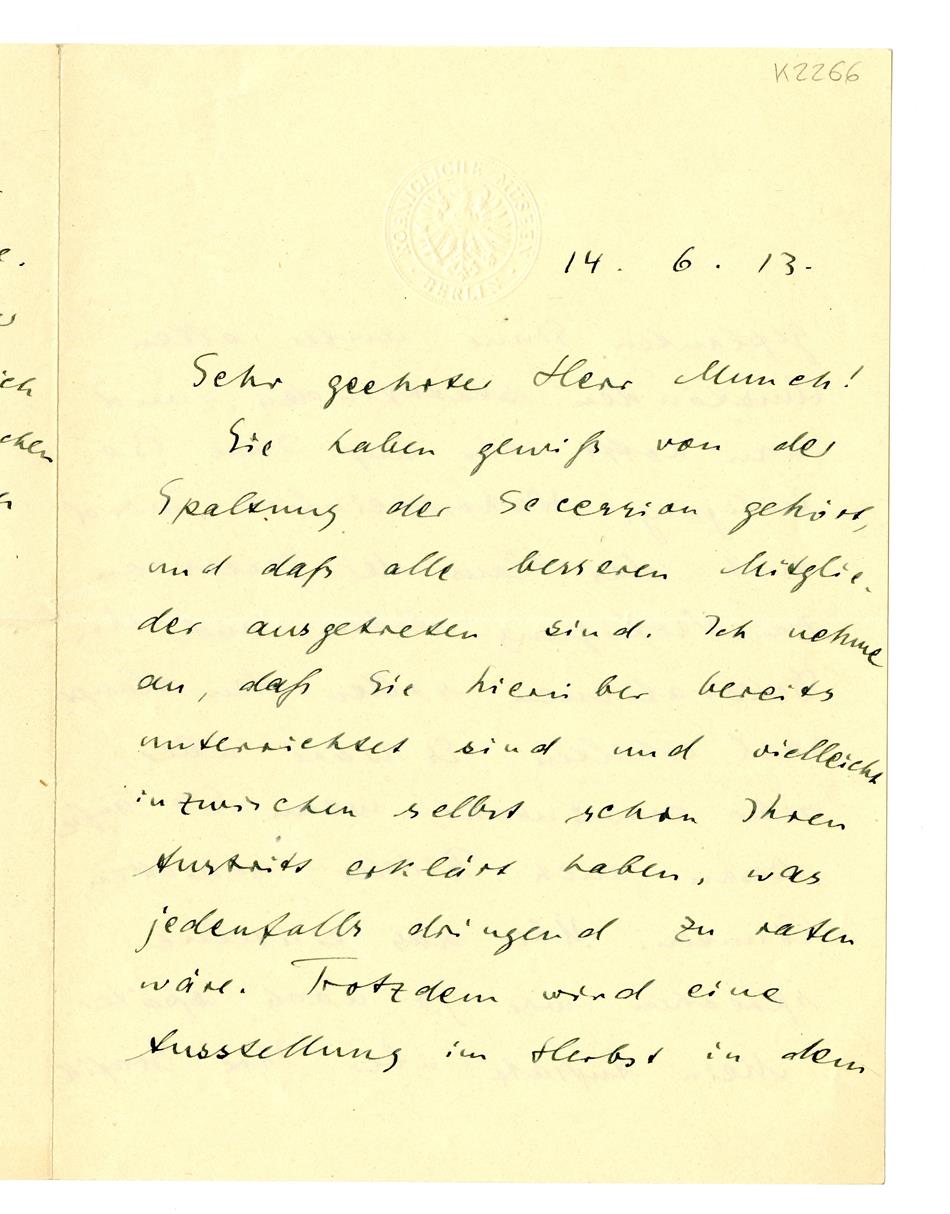 K2266
KOENIGLICHE MUSEEN
· BERLIN ·
14. 6. 13.
e.
ich
chen
Sehr geehrter Herr Munch!
Sie haben gewiß von der
Spaltung der Secession gehört,
und daß alle besseren Mitglie-
der ausgetreten sind. Ich nehme
an, daß Sie hierüber bereits
unterrichtet sind und vielleicht
inzwischen selbst schon Ihren
Austritt erklärt haben, was
jedenfalls dringend zu raten
wäre. Trotzdem wird eine
Ausstellung im Herbst in dem